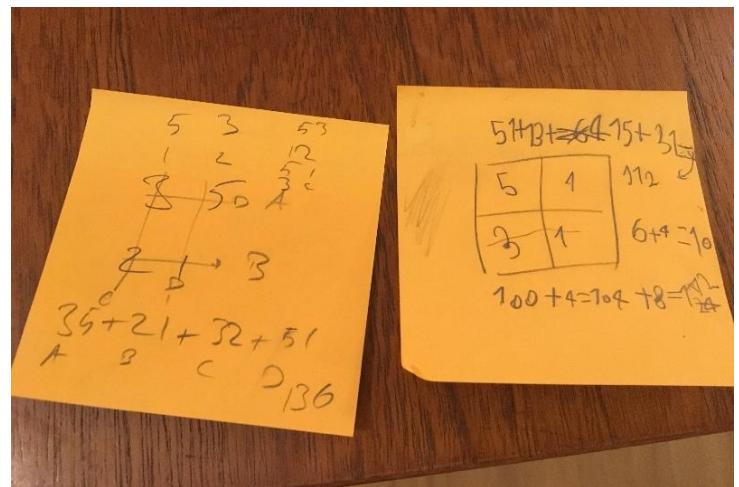 5 3 53
1 2 12
3 5 D A
2 1 B
C D
35+21+32+51
A B C D
136
51+13+64 15+31
5 1 112
3 1 6+4=10
100+4=104+8=112